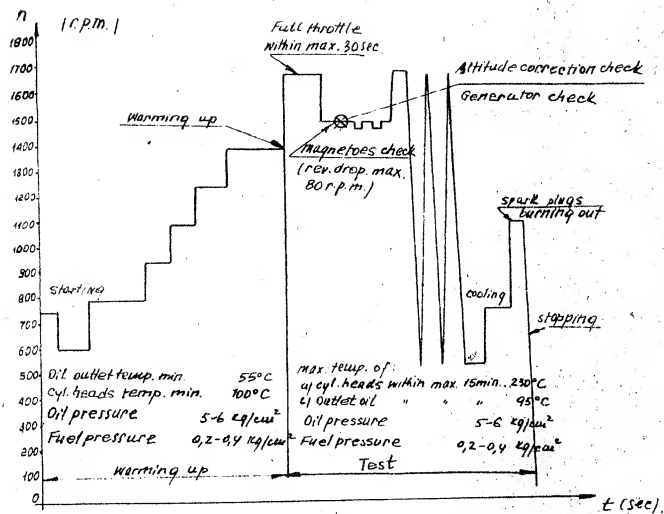 n
|r.p.m.|
1800
1700
1600
1500
1400
1300
1200
1100
1000
900
800
700
600
500
400
300
200
100
0
Full throttle
within max. 30sec
Altitude correction check
Generator check
warming up
magnetoes check
(rev. drop. max.
80 r.p.m.)
spark plugs
burning out
starting
cooling
stopping
Oil outlet temp. min. 55°C
Cyl. heads temp. min. 100°C
Oil pressure 5-6 kg/cm²
Fuel pressure 0,2-0,4 kg/cm²
max. temp. of:
a/ cyl. heads within max. 15min.. 230°C
c/ Outlet oil " " 95°C
Oil pressure 5-6 kg/cm²
Fuel pressure 0,2-0,4 kg/cm²
warming up
Test
t (sec).